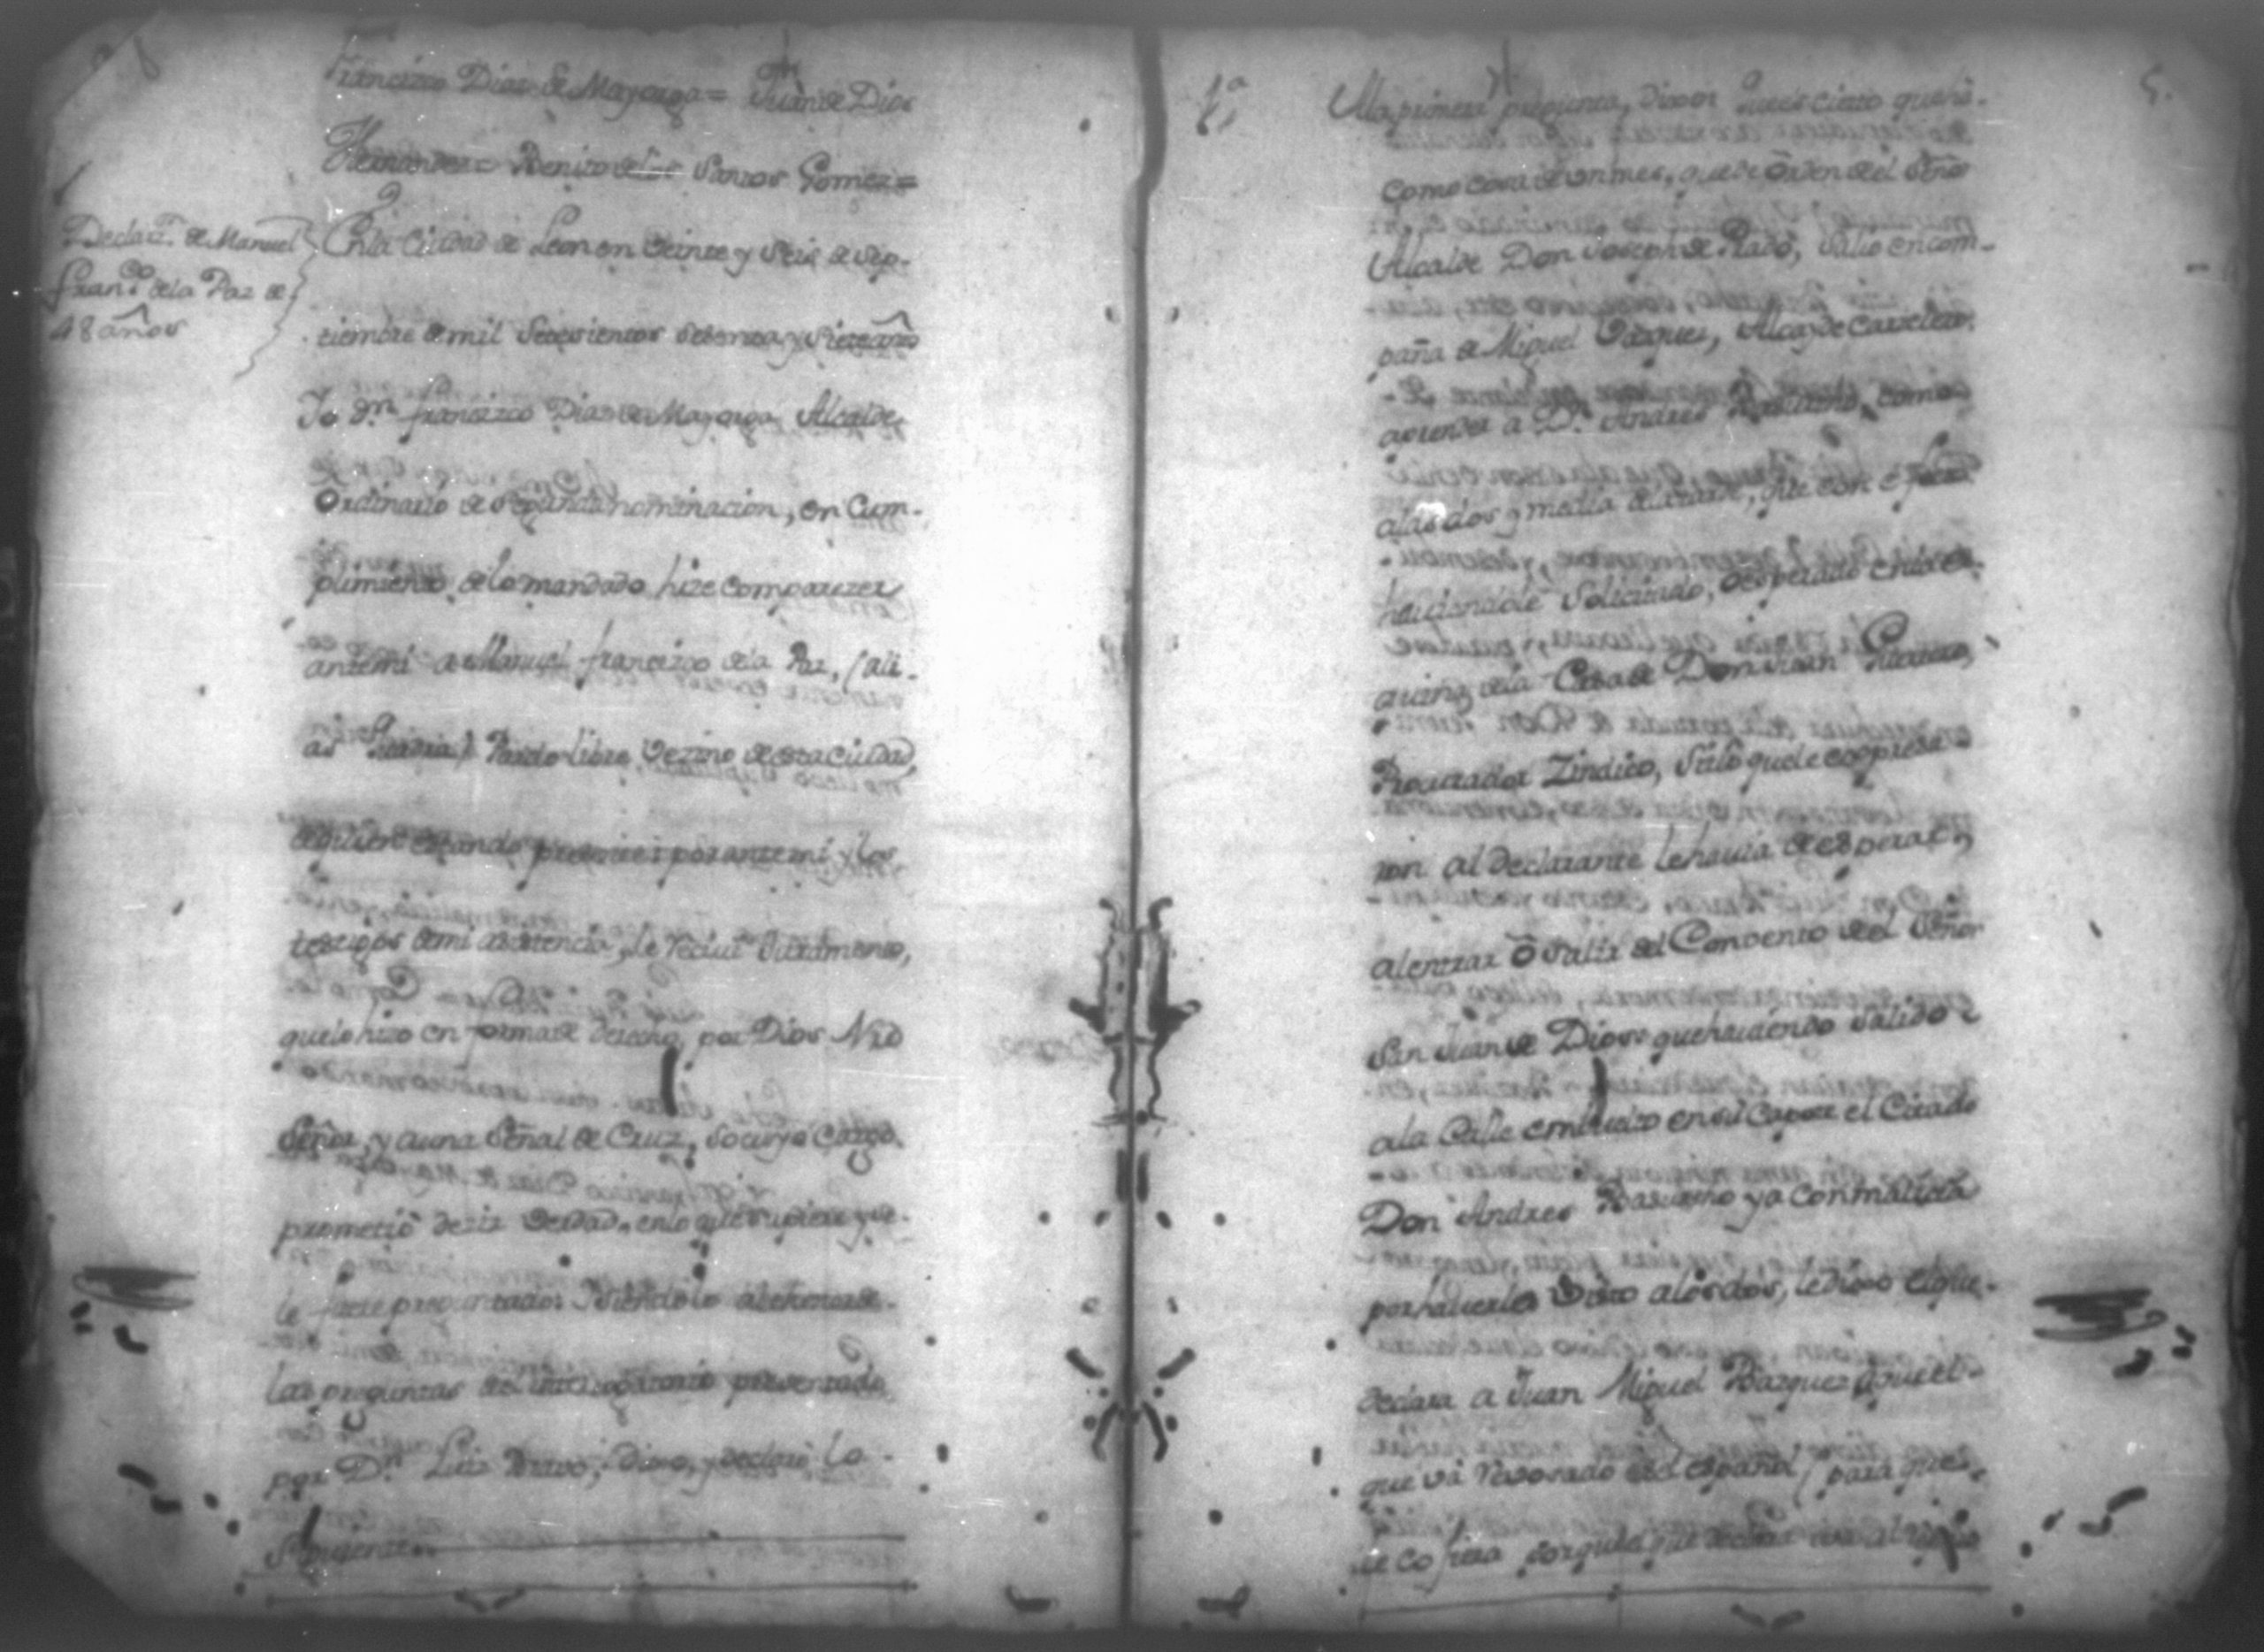 Francizco Diaz de Mayorga= Juan de Dios
Hernandez= Benito de los Santos Gomez=
Declaz.n de Manuel
Fran.co de la Paz de
48 años
En la Ciudad de Leon en Veinte y Seis de Sep-
tiembre de mil Setesientos setenta y siete años
Yo Dn. francizco Diaz de Mayorga Alcalde
Ordinario de segunda nominacion, en Cum-
plimiento de lo mandado hize comparezer
antemi a Manuel francizco de la Paz, (ali-
as) Pardo libre Vezino de esta Ciudad,
de quien estando presente por antemi y los
testigos de mi asistencia, le reciui Juramento,
que lo hizo en forma de derecho, por Dios Nro
Señor, y a una Señal de Cruz, so cuyo Cargo
prometió dezir Verdad, en lo que supiere y se
le fuere preguntado: siendolo al thenor de
las preguntas del interrogatorio presentado
por Dn. Luis Bravo, dixo, y declaró lo
Siguiente
5.
1a
A la primera pregunta, dixo: Que es cierto que ha-
como cosa de un mes, que de Orden del Señor
Alcalde Don Joseph de Prado, salio en com-
paña de Miguel Vazquez, Alcayde Carcelero,
a prender a Dn. Andres como
a las dos y media de la tarde, que con efecto
hauiendole Solicitado, o esperado en la es-
quina de la Casa de Don Juan Guerrero,
Procurador Zindico, sitio que le expresa-
ron al declarante le hauia de esperar,
al entrar ó salir del Convento del Señor
San Juan de Dios: que hauiendo salido
a la Calle embuelto en su Capote el Citado
Don Andres ya con malicia
por hauerles Visto a los dos, le dixo el que
declara a Juan Miguel Bazquez, aquel
que vá revosado es el español (para que